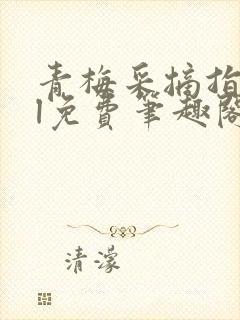 青梅采摘指
l免费笔趣阁
清濛